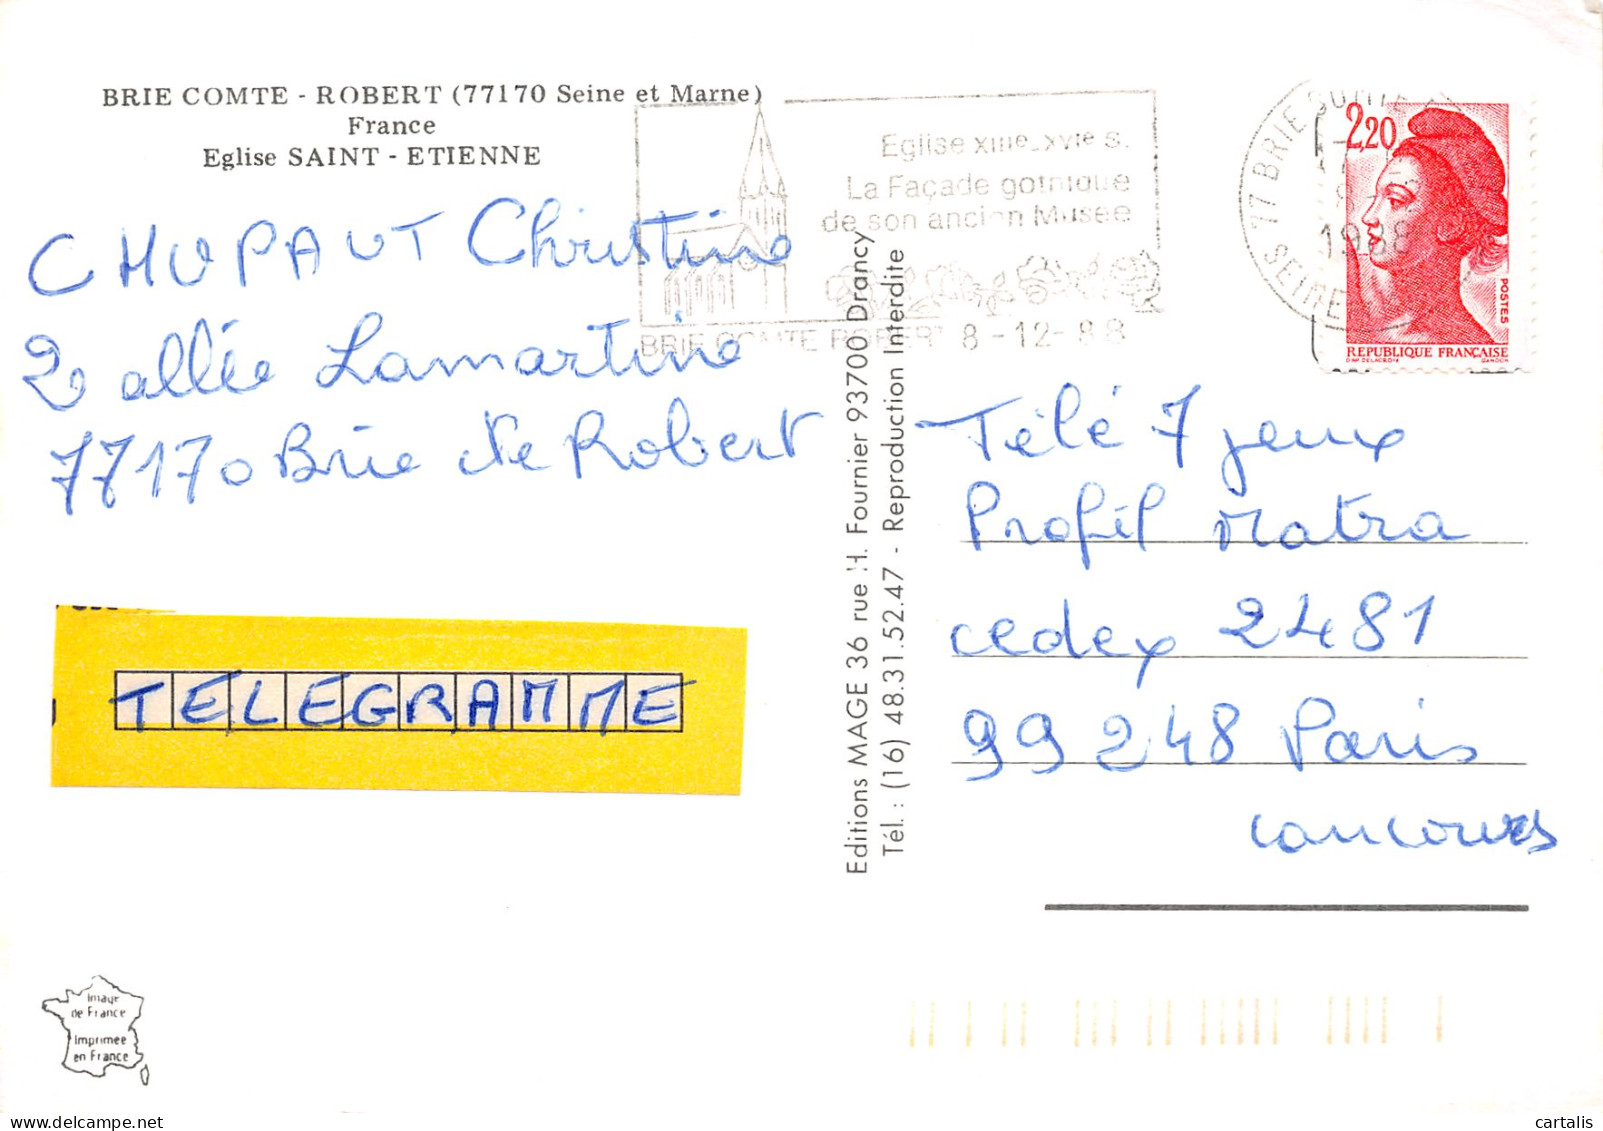 BRIE COMTE - ROBERT (77170 Seine et Marne)
France
Eglise SAINT - ETIENNE
CHUPAUT Christine
2 allée Lamartine
77170 Brie Cte Robert
TELEGRAMME
Image
de France
Imprimee
en France
Eglise XIIIe_XVIe s.
La Façade gothique
de son ancien Musée
BRIE COMTE ROBERT 8 - 12 - 88
Editions MAGE 36 rue H. Fournier 93700 Drancy
Tél. : (16) 48.31.52.47 - Reproduction Interdite
77 BRIE COMTE
1988
SEINE
2,20
POSTES
REPUBLIQUE FRANÇAISE
D'AP. DELACROIX GANDON
Télé 7 jeux
Profil Matra
cedex 2481
99248 Paris
concours
cartalis